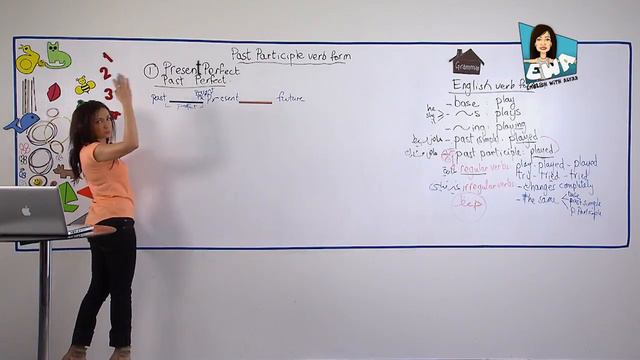 Past Participle verb form
① Present Perfect
Past Perfect
past present future
perfect
1
2
3
Grammar
EWA
ENGLISH WITH
English verb
- base : play
he
- ~s : plays
- ~ing : playing
- past simple : played
- past participle : played
regular verbs
play - played - played
try - tried - tried
irregular verbs
- changes completely
- the same
base
past simple
p. participle